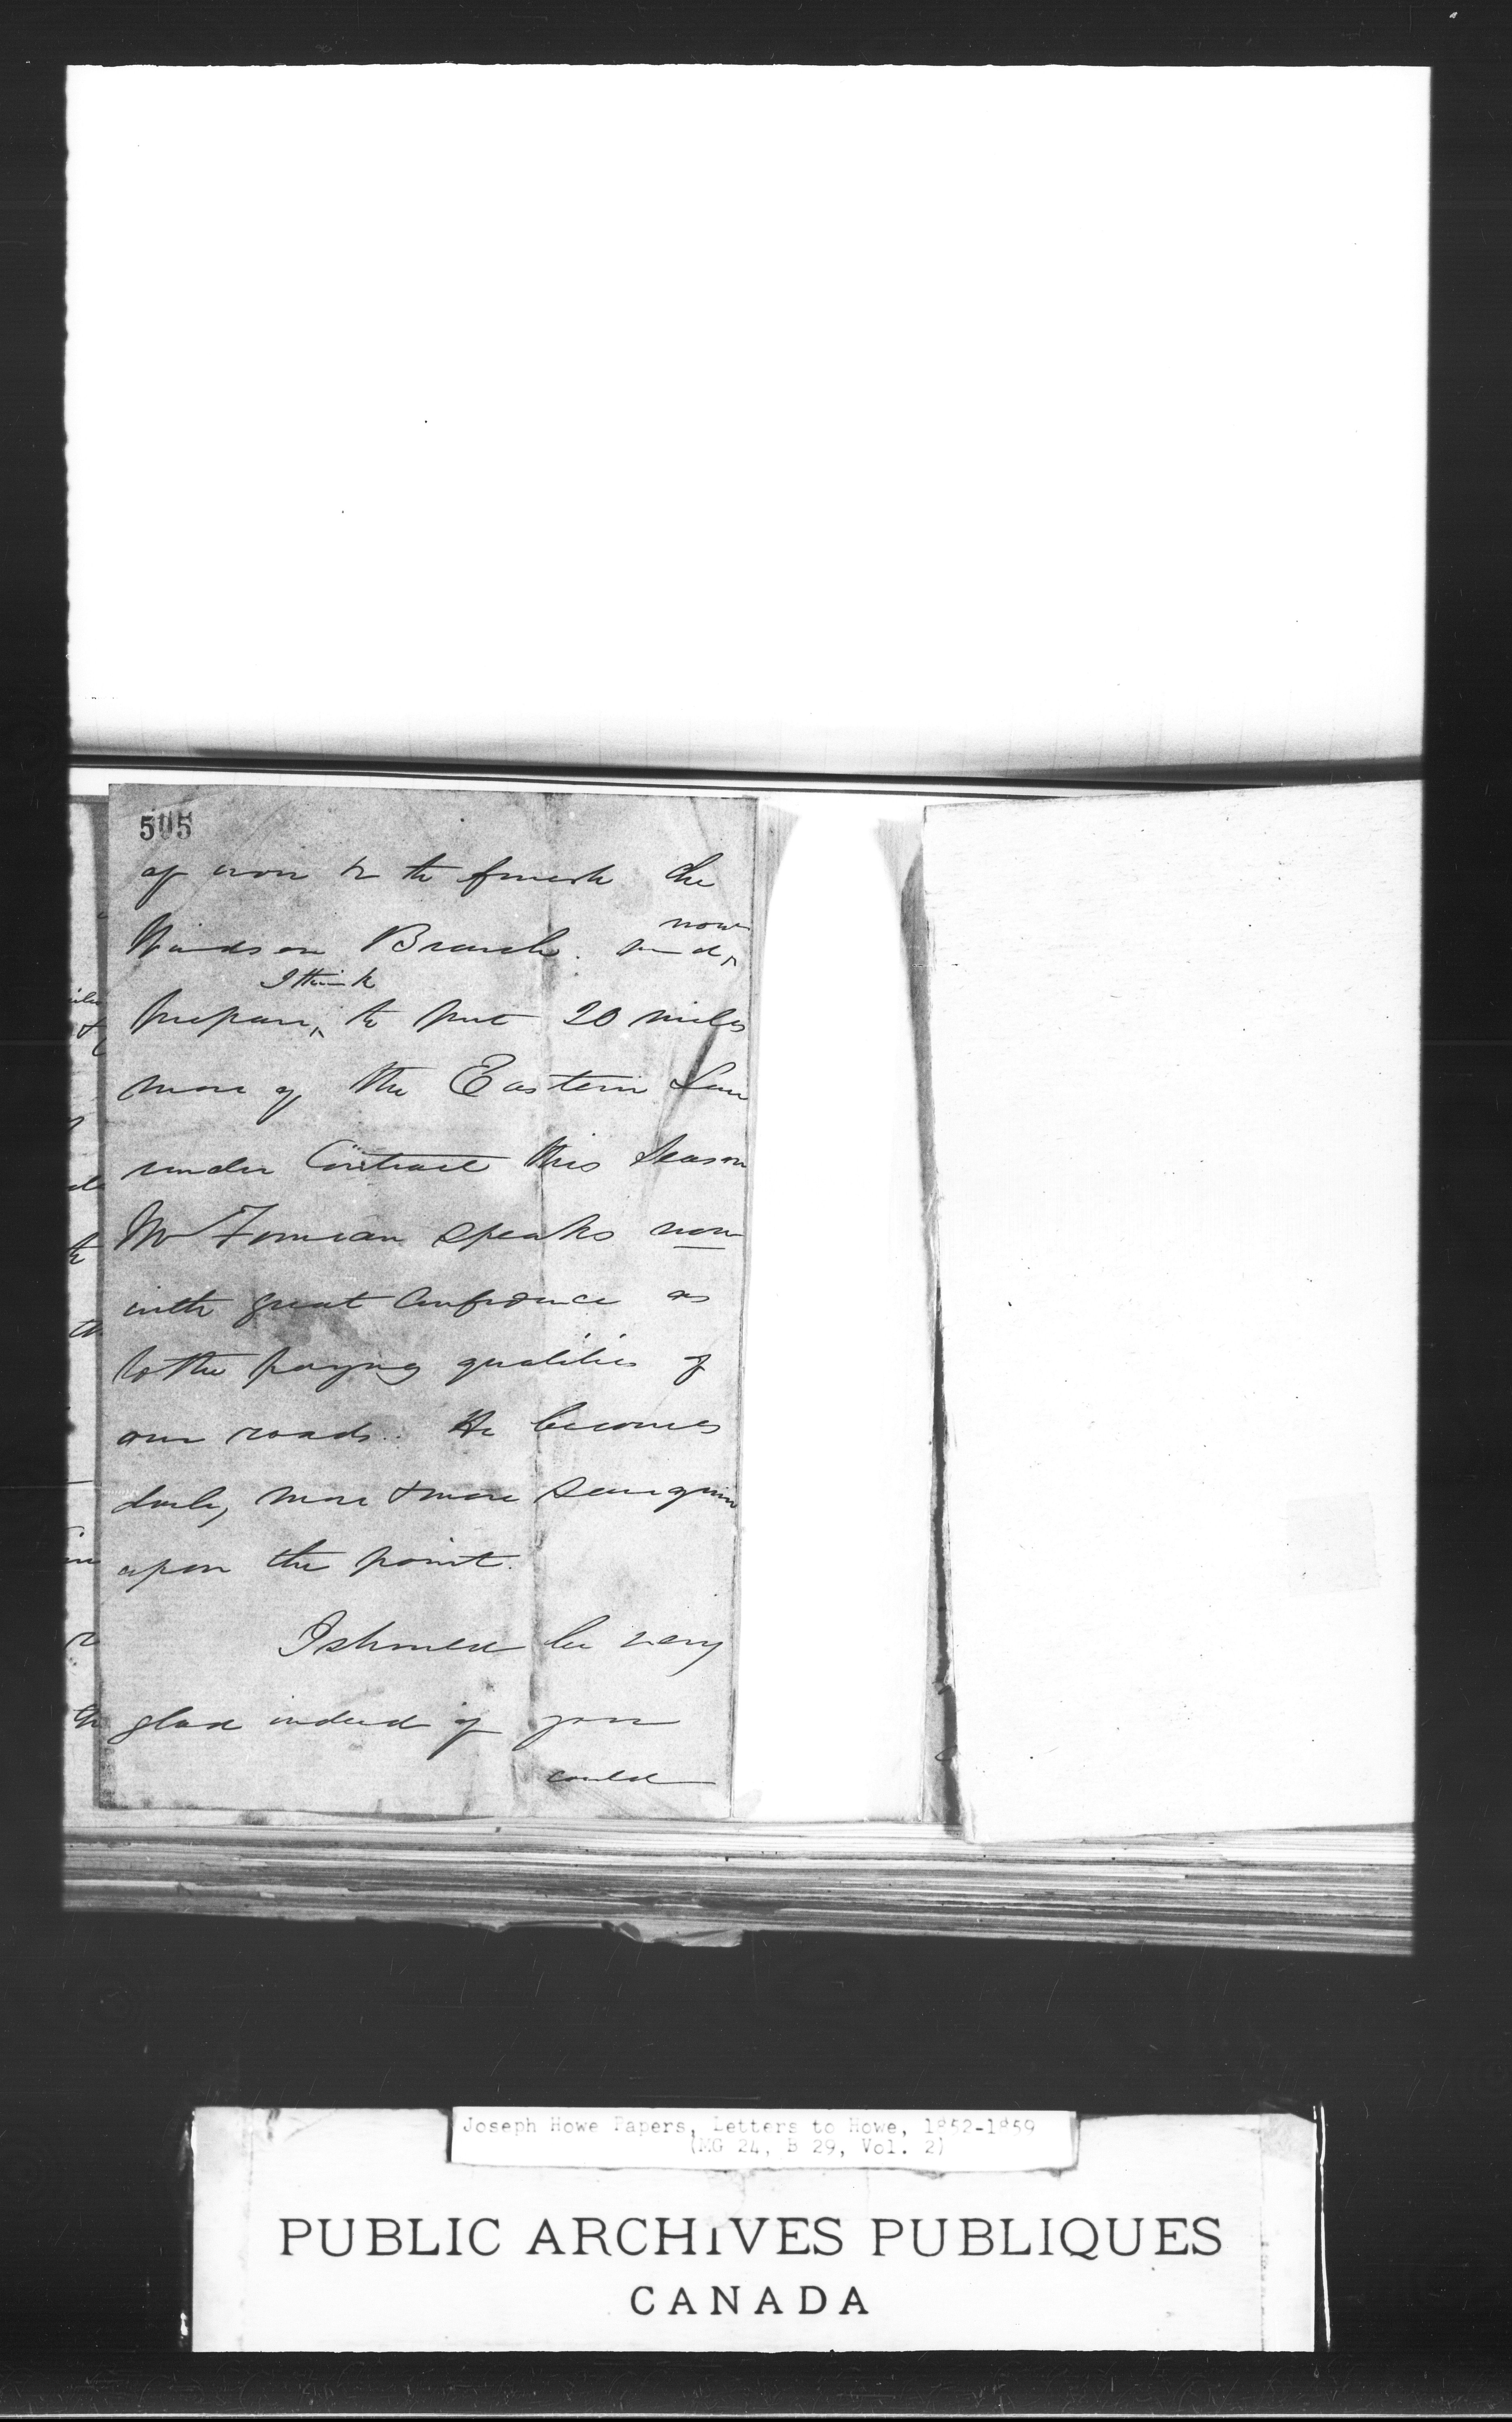 505
of iron to the finish the
Windsor Branch. and
now
I think
prepare, to put 20 miles
more of the Eastern Line
under Contract this Season
Mr Forman speaks now
with great Confidence as
to the paying qualities of
our roads. He becomes
daily, more & more sanguine
upon the point.
I should be very
glad indeed if you
could
Joseph Howe Papers, Letters to Howe, 1852-1859
(MG 24, B 29, Vol. 2)
PUBLIC ARCHIVES PUBLIQUES
CANADA